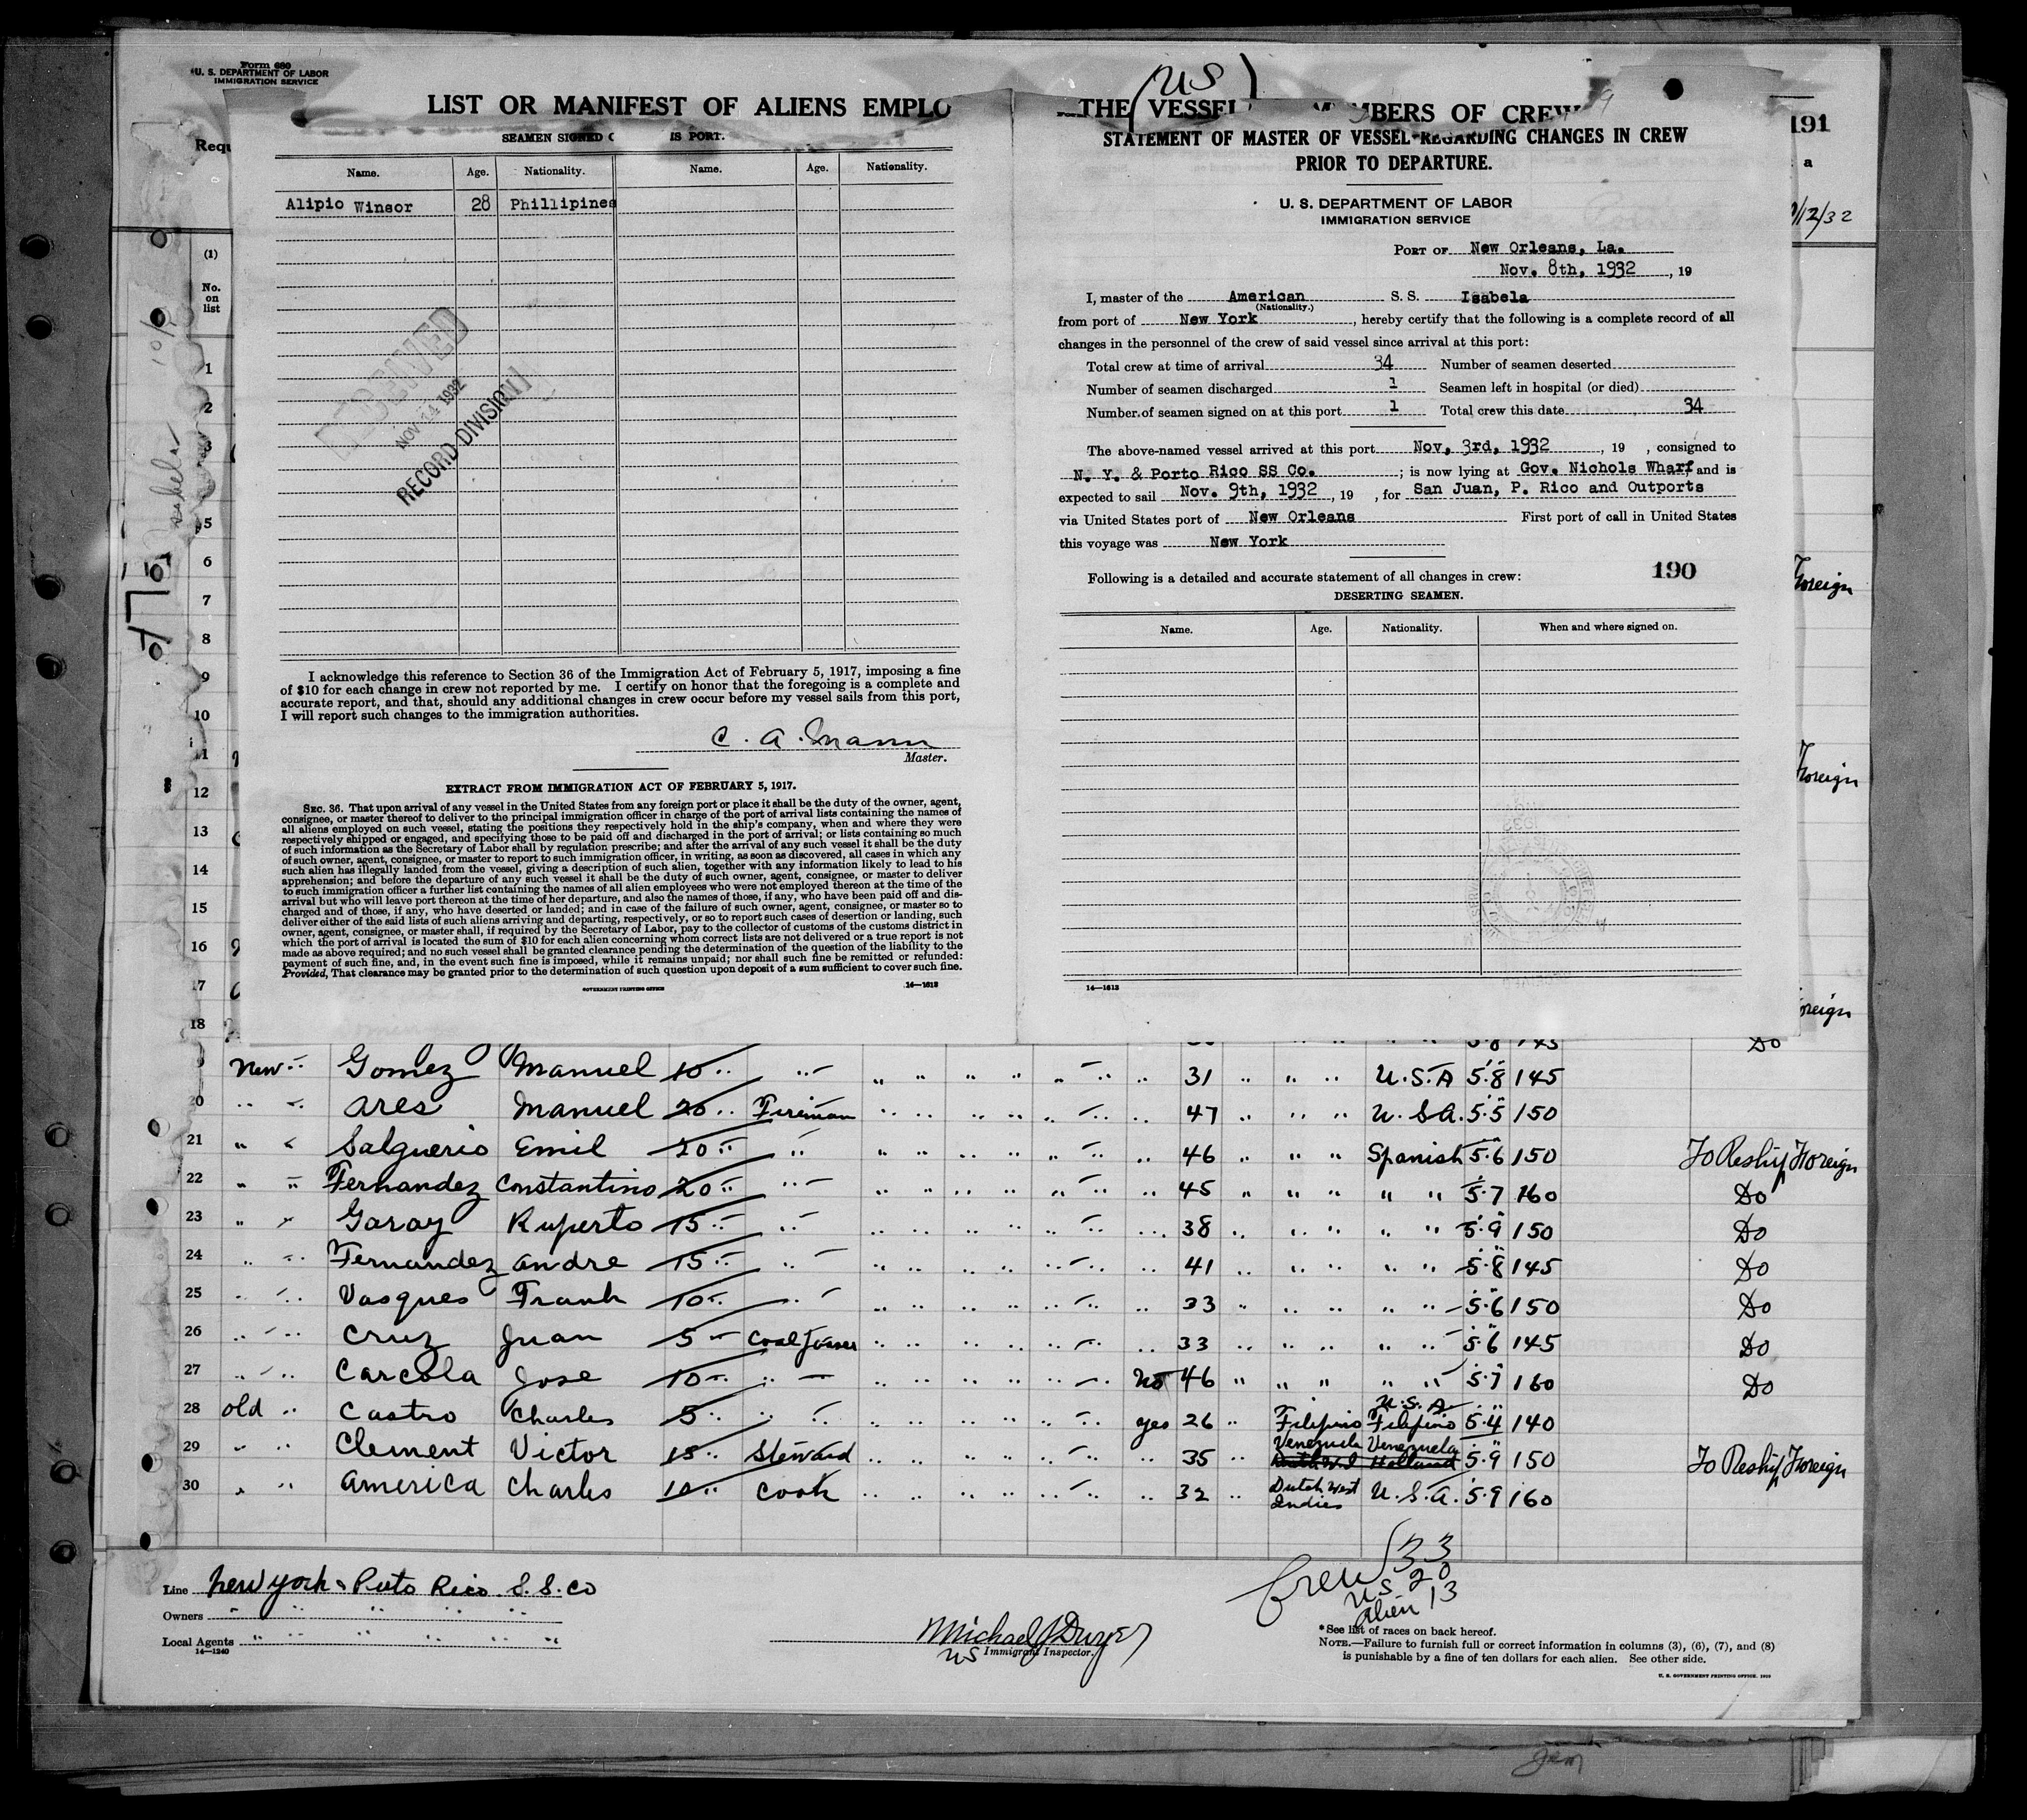 Form 680
U. S. DEPARTMENT OF LABOR
IMMIGRATION SERVICE
(US)
LIST OR MANIFEST OF ALIENS EMPLO
THE VESSEL
MBERS OF CREW
191
Requ
a
/12/32
(1)
No.
on
list
1
2
3
5
6
7
8
9
10
11
12
13
14
15
16
17
18
SEAMEN SIGNED O IS PORT.
Name. Age. Nationality. Name. Age. Nationality.
Alipio Winsor 28 Phillipines
RECEIVED
NOV 14 1932
RECORD DIVISION
I acknowledge this reference to Section 36 of the Immigration Act of February 5, 1917, imposing a fine
of $10 for each change in crew not reported by me. I certify on honor that the foregoing is a complete and
accurate report, and that, should any additional changes in crew occur before my vessel sails from this port,
I will report such changes to the immigration authorities.
C. A. Mann
Master.
EXTRACT FROM IMMIGRATION ACT OF FEBRUARY 5, 1917.
SEC. 36. That upon arrival of any vessel in the United States from any foreign port or place it shall be the duty of the owner, agent,
consignee, or master thereof to deliver to the principal immigration officer in charge of the port of arrival lists containing the names of
all aliens employed on such vessel, stating the positions they respectively hold in the ship's company, when and where they were
respectively shipped or engaged, and specifying those to be paid off and discharged in the port of arrival; or lists containing so much
of such information as the Secretary of Labor shall by regulation prescribe; and after the arrival of any such vessel it shall be the duty
of such owner, agent, consignee, or master to report to such immigration officer, in writing, as soon as discovered, all cases in which any
such alien has illegally landed from the vessel, giving a description of such alien, together with any information likely to lead to his
apprehension; and before the departure of any such vessel it shall be the duty of such owner, agent, consignee, or master to deliver
to such immigration officer a further list containing the names of all alien employees who were not employed thereon at the time of the
arrival but who will leave port thereon at the time of her departure, and also the names of those, if any, who have been paid off and dis-
charged and of those, if any, who have deserted or landed; and in case of the failure of such owner, agent, consignee, or master so to
deliver either of the said lists of such aliens arriving and departing, respectively, or so to report such cases of desertion or landing, such
owner, agent, consignee, or master shall, if required by the Secretary of Labor, pay to the collector of customs of the customs district in
which the port of arrival is located the sum of $10 for each alien concerning whom correct lists are not delivered or a true report is not
made as above required; and no such vessel shall be granted clearance pending the determination of the question of the liability to the
payment of such fine, and, in the event such fine is imposed, while it remains unpaid; nor shall such fine be remitted or refunded:
Provided, That clearance may be granted prior to the determination of such question upon deposit of a sum sufficient to cover such fine.
GOVERNMENT PRINTING OFFICE 14—1613
STATEMENT OF MASTER OF VESSEL REGARDING CHANGES IN CREW
PRIOR TO DEPARTURE.
U. S. DEPARTMENT OF LABOR
IMMIGRATION SERVICE
PORT OF New Orleans, La.
Nov. 8th, 1932, 19
I, master of the American S. S. Isabela
(Nationality.)
from port of New York, hereby certify that the following is a complete record of all
changes in the personnel of the crew of said vessel since arrival at this port:
Total crew at time of arrival 34 Number of seamen deserted
Number of seamen discharged 1 Seamen left in hospital (or died)
Number of seamen signed on at this port 1 Total crew this date 34
The above-named vessel arrived at this port Nov, 3rd, 1932, 19 , consigned to
N. Y. & Porto Rico SS Co. ; is now lying at Gov. Nichols Wharf and is
expected to sail Nov. 9th, 1932, 19 , for San Juan, P. Rico and Outports
via United States port of New Orleans First port of call in United States
this voyage was New York
Following is a detailed and accurate statement of all changes in crew: 190
DESERTING SEAMEN.
Name. Age. Nationality. When and where signed on.
14—1613
Foreign
Foreign
oreign
5.8 145 Do
9 New Gomez Manuel 10 31 U.S.A 5.8 145
20 Ares Manuel 20 Fireman 47 U.S.A. 5.5 150
21 Salguerio Emil 20 46 Spanish 5.6 150 To Reship Foreign
22 Fernandez Constantino 20 45 5.7 160 Do
23 Garay Ruperto 15 38 5.9 150 Do
24 Fernandez andre 15 41 5.8 145 Do
25 Vasques Frank 10 33 5.6 150 Do
26 Cruz Juan 5 Coal Passer 33 5.6 145 Do
27 Carcola Jose 10 no 46 5.7 160 Do
28 old Castro Charles 5 yes 26 Filipino U.S.A Filipino 5.4 140
29 Clement Victor 15 Steward 35 Venezuela Venezuela Dutch W.I Holland 5.9 150 To Reship Foreign
30 America Charles 10 Cook 32 Dutch West Indies U.S.A. 5.9 160
Line New York & Porto Rico S.S. Co
Owners " " " " "
Local Agents " " " " "
14—1240
Michael J Dwyer
US Immigrant Inspector.
Crew 33
US 20
Alien 13
*See list of races on back hereof.
NOTE.—Failure to furnish full or correct information in columns (3), (6), (7), and (8)
is punishable by a fine of ten dollars for each alien. See other side.
U. S. GOVERNMENT PRINTING OFFICE